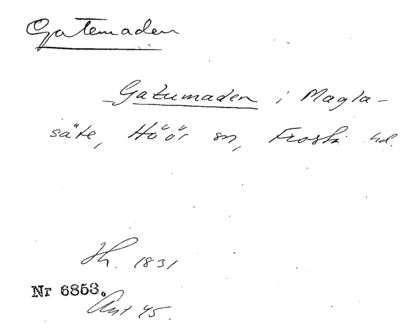 Gatemaden
Gatumaden i Magla-
säte, Höör sn, Frosta hd.
Jh. 1831
Nr 6853.
Ant 45.